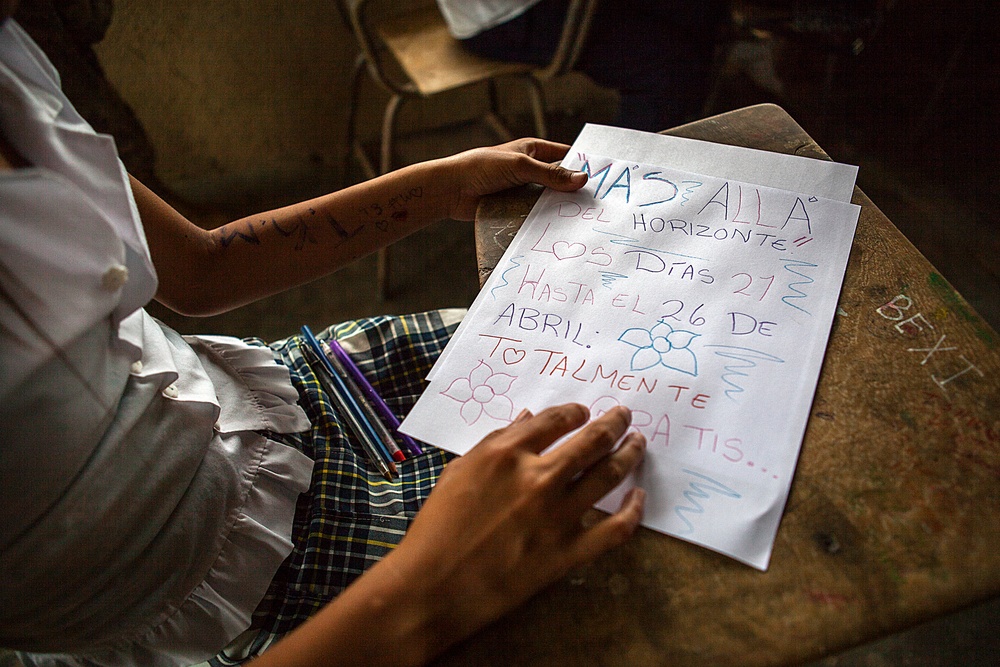 "MÁS ALLÁ
DEL HORIZONTE"
LOS DÍAS 21
HASTA EL 26 DE
ABRIL:
TOTALMENTE
GRATIS...
BEXI